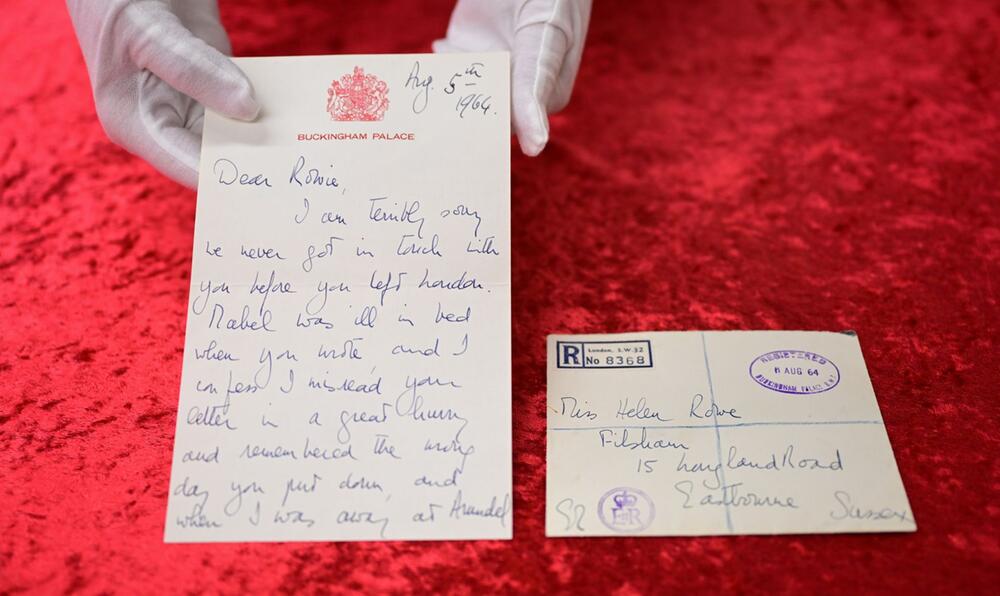 Aug. 5th
1964.
BUCKINGHAM PALACE
Dear Rowie,
I am terribly sorry
we never got in touch with
you before you left London.
Mabel was ill in bed
when you wrote and I
confess I misread your
letter in a great hurry
and remembered the wrong
day you put down, and
when I was away at Arundel
R
London, S.W.32
No 8368
REGISTERED
AUG 64
BUCKINGHAM PALACE
Miss Helen Rowe
Filsham
15 Langland Road
Eastbourne Sussex
EIIR